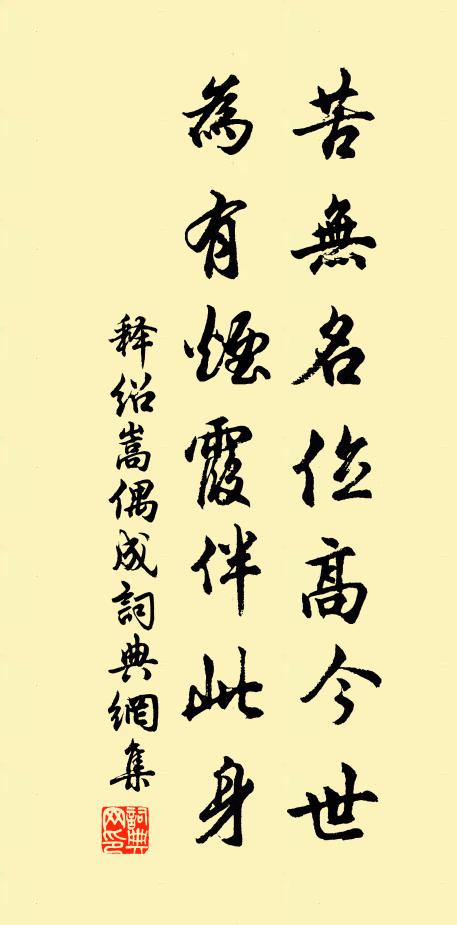 苦無名位高今世
為有煙霞伴此身
释绍嵩偶成詞典網集
詞典网印